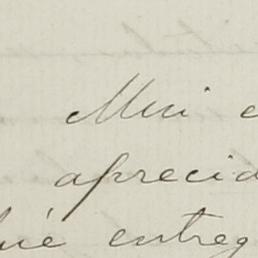 Mui
aprecia
entreg